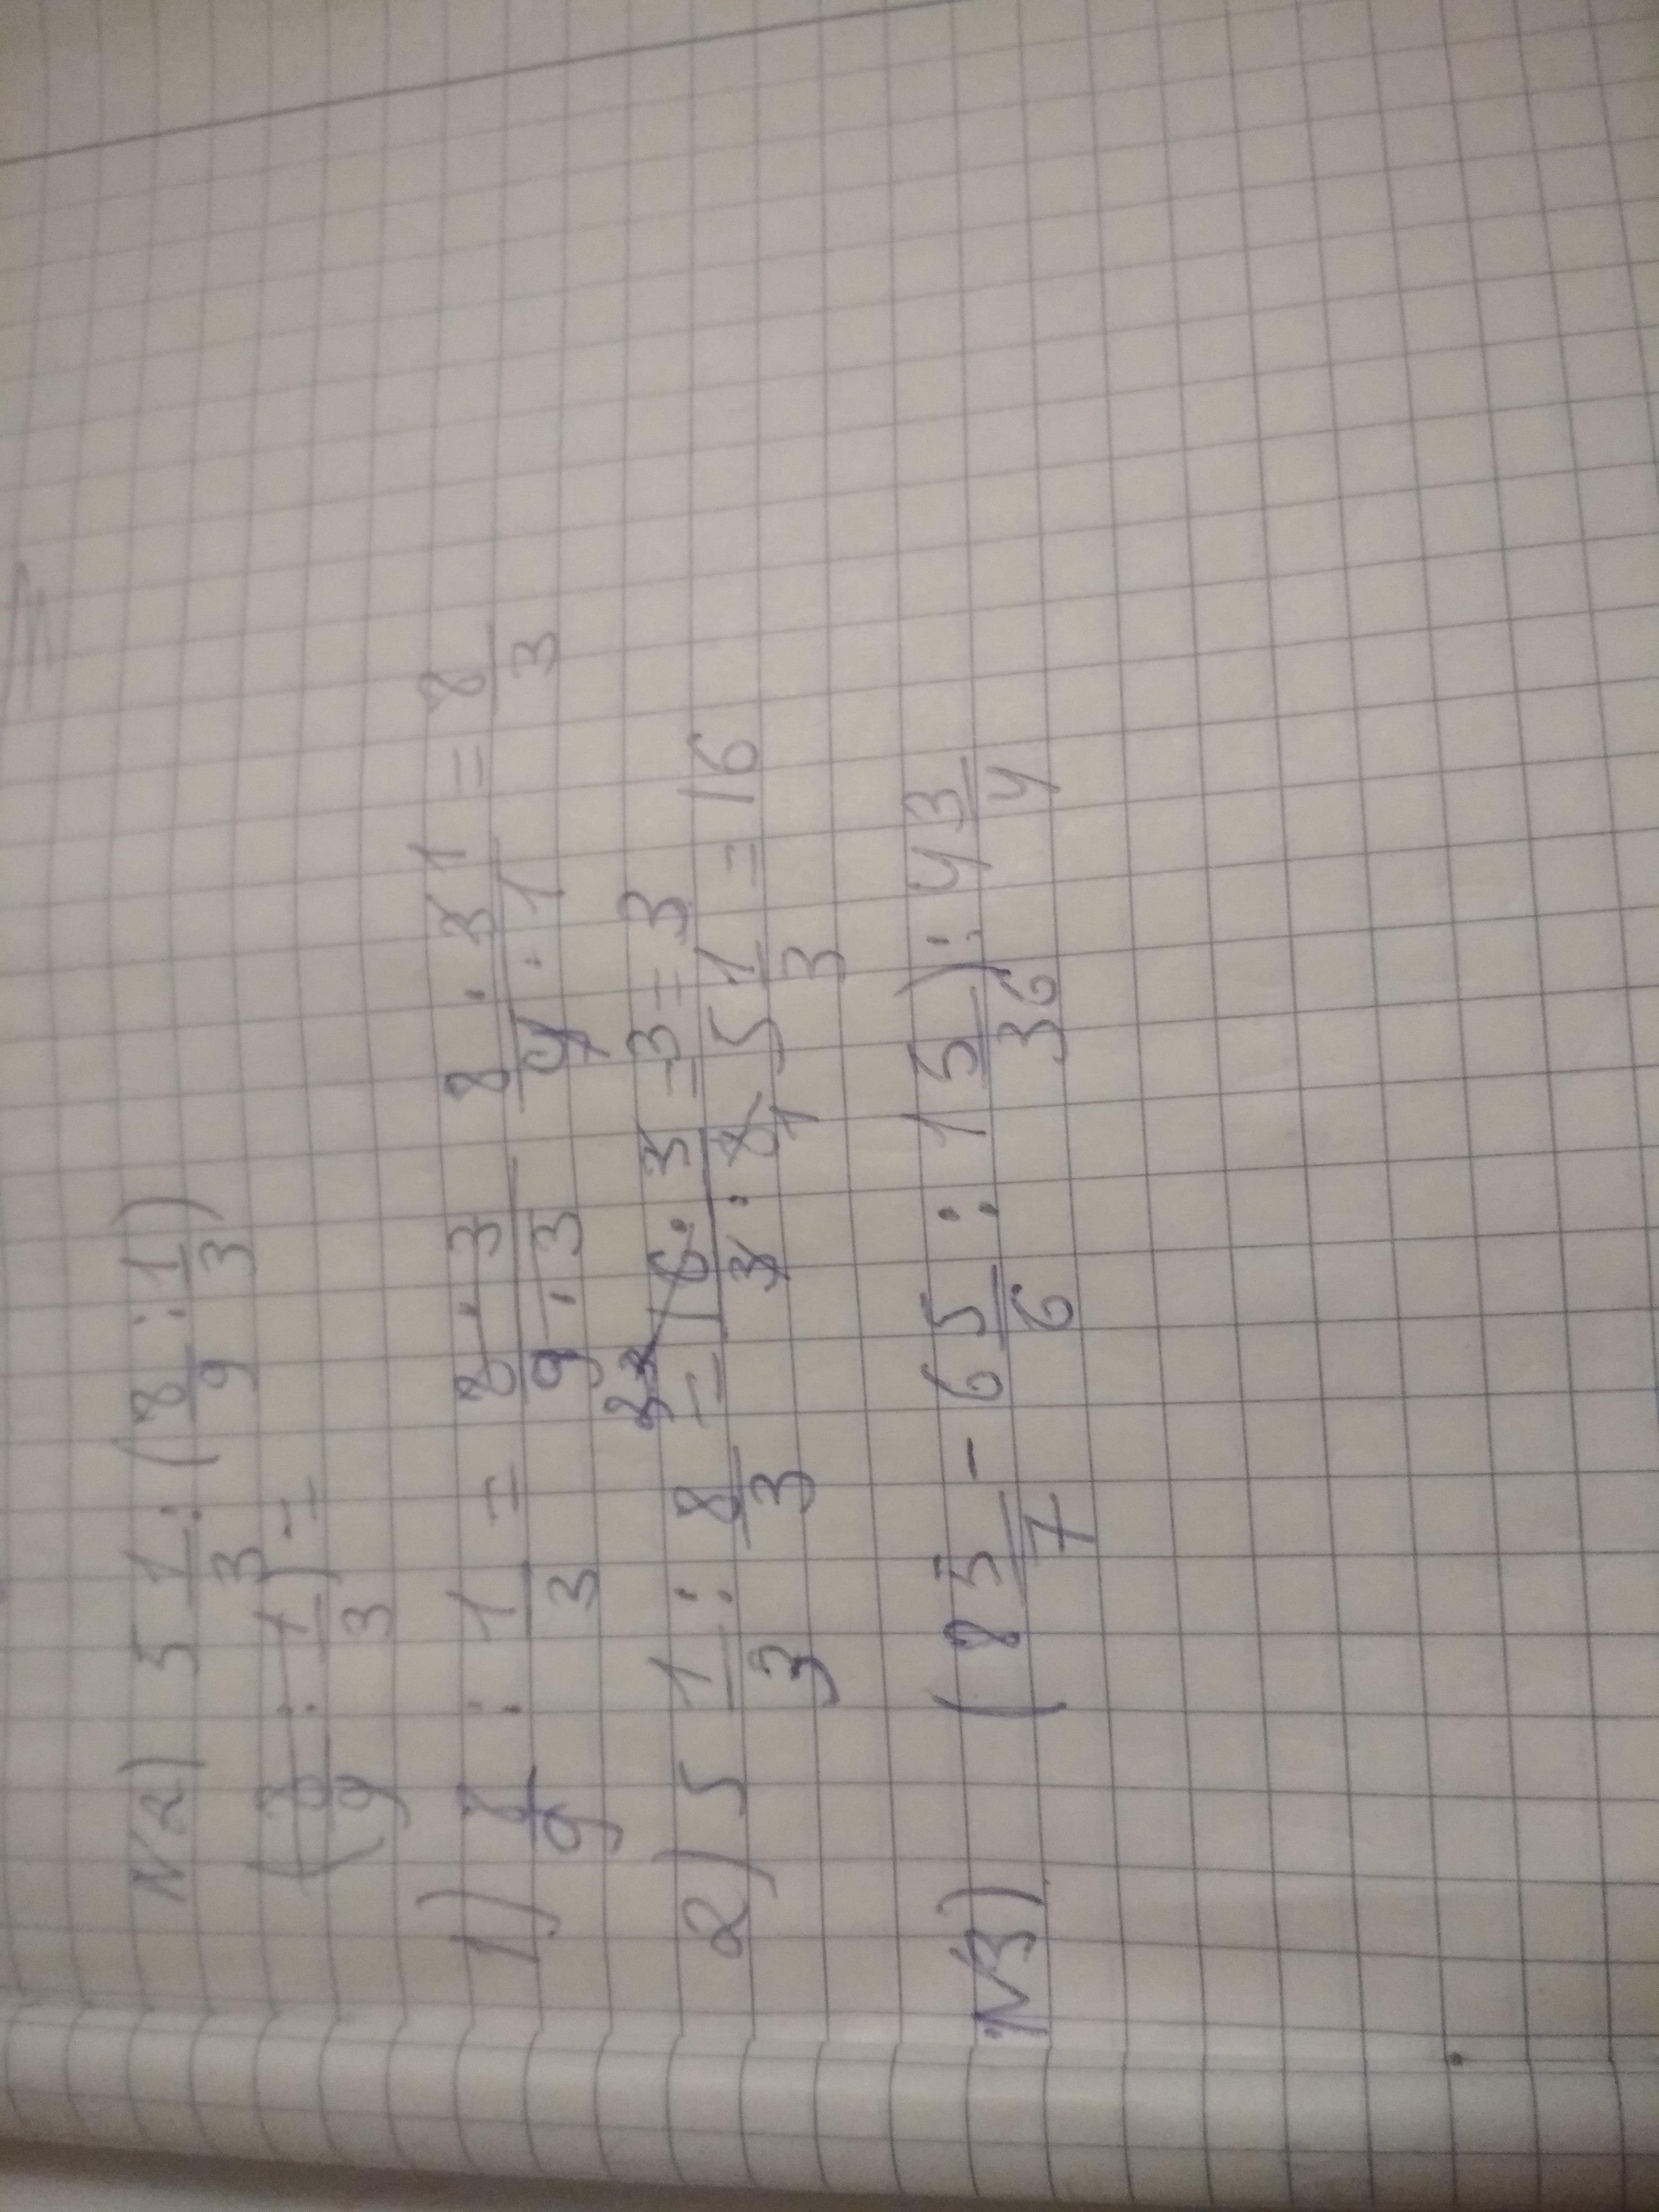 N2) 5 1/3 : (8/9 : 1/3)
(8/9 : 1/3) =
1) 8/9 : 1/3 = 8·3/9·3 8·3 1/9·1 = 8/3
2) 5 1/3 : 8/3 = 16·3/3·8 1 = 3 = 3 5 1/3 = 16
N3) (8 5/7 - 6 5/6 : 1 5/36) : 4 3/4